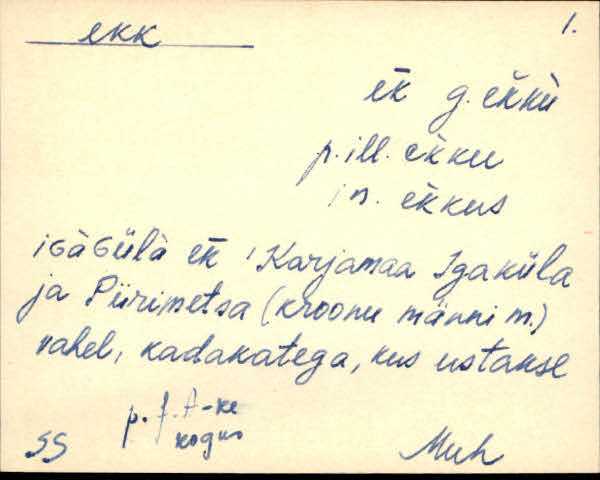 ekk
1.
ek̄ g. ek̆kù
p. ill. ek̀ku
in. ek̀kus
iɢàɢülà ek̄ 'Karjamaa Igaküla
ja Piirimetsa (kroonu männi m.)
vahel, kadakatega, kus ustakse
p. J. A-ke
kogus
SS
Muh